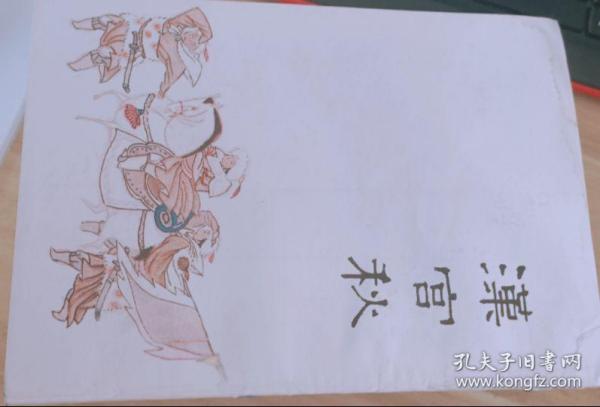 漢宮秋
孔夫子旧書网
www.kongfz.com